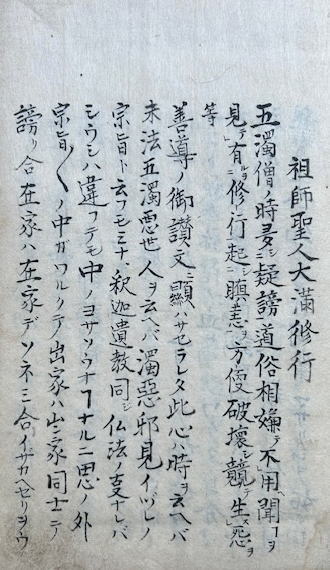 祖師聖人大滿修行
五濁僧時多ニ疑謗道俗相嫌テ不用聞ヿヲ
見テ有ルヲ修行起シ瞋恚ヲ方便破壊シ競テ生ス怨ヲ
等
善導ノ御讃文ニ顯サセラレタ此心ハ時ヲ云ヘバ
末法五濁悪世人ヲ云ヘバ濁惡邪見イヅレノ
宗旨ト云フモミナ釈迦遺教同シ仏法ノ事ナレバ
シウシハ違フテモ中ノヨサソウナヿナルニ思ノ外
宗旨〱ノ中ガワルクテ出家ハ出家同士デ
謗リ合在家ハ在家デソネミ合イサカヘセリ